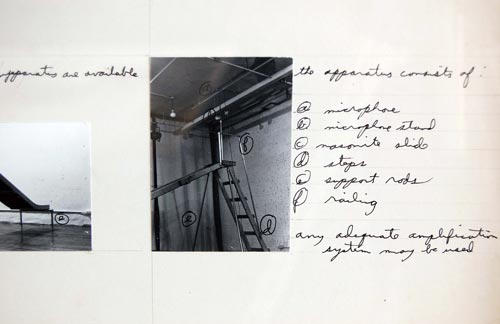 apparatus are available
the apparatus consists of :
ⓐ microphone
ⓑ microphone stand
ⓒ masonite slide
ⓓ steps
ⓔ support rods
ⓕ railing
any adequate amplification
system may be used
ⓕ
ⓔ
ⓓ